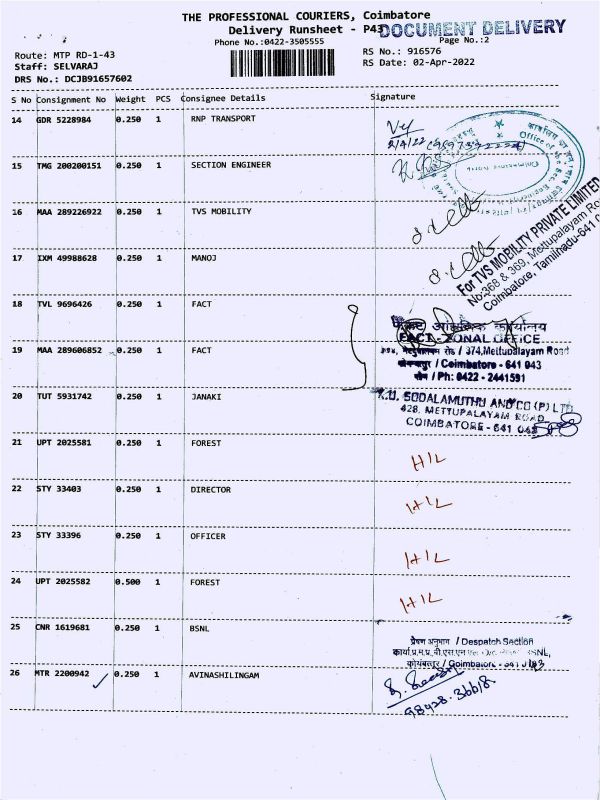 THE PROFESSIONAL COURIERS, Coimbatore
Delivery Runsheet - P43
DOCUMENT DELIVERY
Phone No.:0422-3505555
Page No.:2
Route: MTP RD-1-43
RS No.: 916576
Staff: SELVARAJ
RS Date: 02-Apr-2022
DRS No.: DCJB91657602
S No Consignment No Weight PCS Consignee Details Signature
14 GDR 5228984 0.250 1 RNP TRANSPORT
15 TMG 200200151 0.250 1 SECTION ENGINEER
16 MAA 289226922 0.250 1 TVS MOBILITY
17 IXM 49988628 0.250 1 MANOJ
For TVS MOBILITY PRIVATE LIMITED
No:368 & 369, Mettupalayam Ro
Coimbatore, Tamilnadu-641 0
18 TVL 9696426 0.250 1 FACT
FACT - ZONAL OFFICE
/ 374,Mettupalayam Road
19 MAA 289606852 0.250 1 FACT
/ Coimbatore - 641 043
फोन / Ph: 0422 - 2441591
20 TUT 5931742 0.250 1 JANAKI
SODALAMUTHU AND CO (P) LTD
428, METTUPALAYAM ROAD
COIMBATORE - 641 043
21 UPT 2025581 0.250 1 FOREST
H/L
22 STY 33403 0.250 1 DIRECTOR
H/L
23 STY 33396 0.250 1 OFFICER
H/L
24 UPT 2025582 0.500 1 FOREST
H/L
25 CNR 1619681 0.250 1 BSNL
प्रेषण अनुभाग / Despatch Section
BSNL,
कोयंबत्तूर / Coimbatore - 641 043
26 MTR 2200942 0.250 1 AVINASHILINGAM
98428-36618